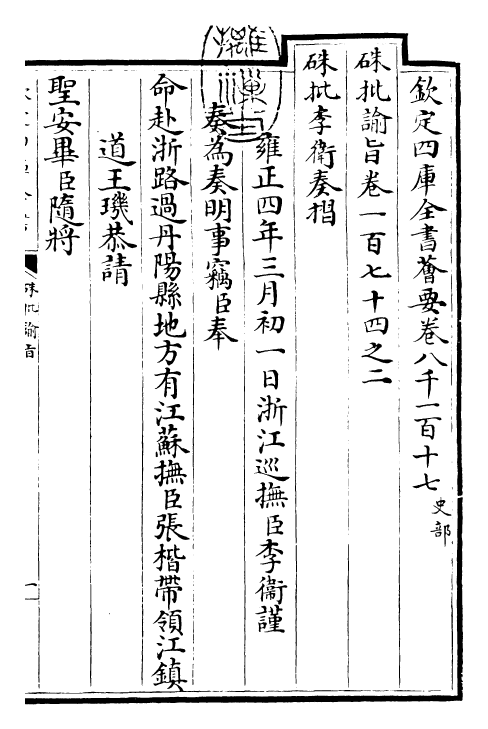 欽定四庫全書薈要卷八千一百十七史部
硃批諭旨卷一百七十四之二
硃批李衛奏摺
雍正四年三月初一日浙江巡撫臣李衛謹
奏為奏明事竊臣奉
命赴浙路過丹陽縣地方有江蘇撫臣張楷帶領江鎮
道王璣恭請
聖安畢臣隨將
硃批諭旨